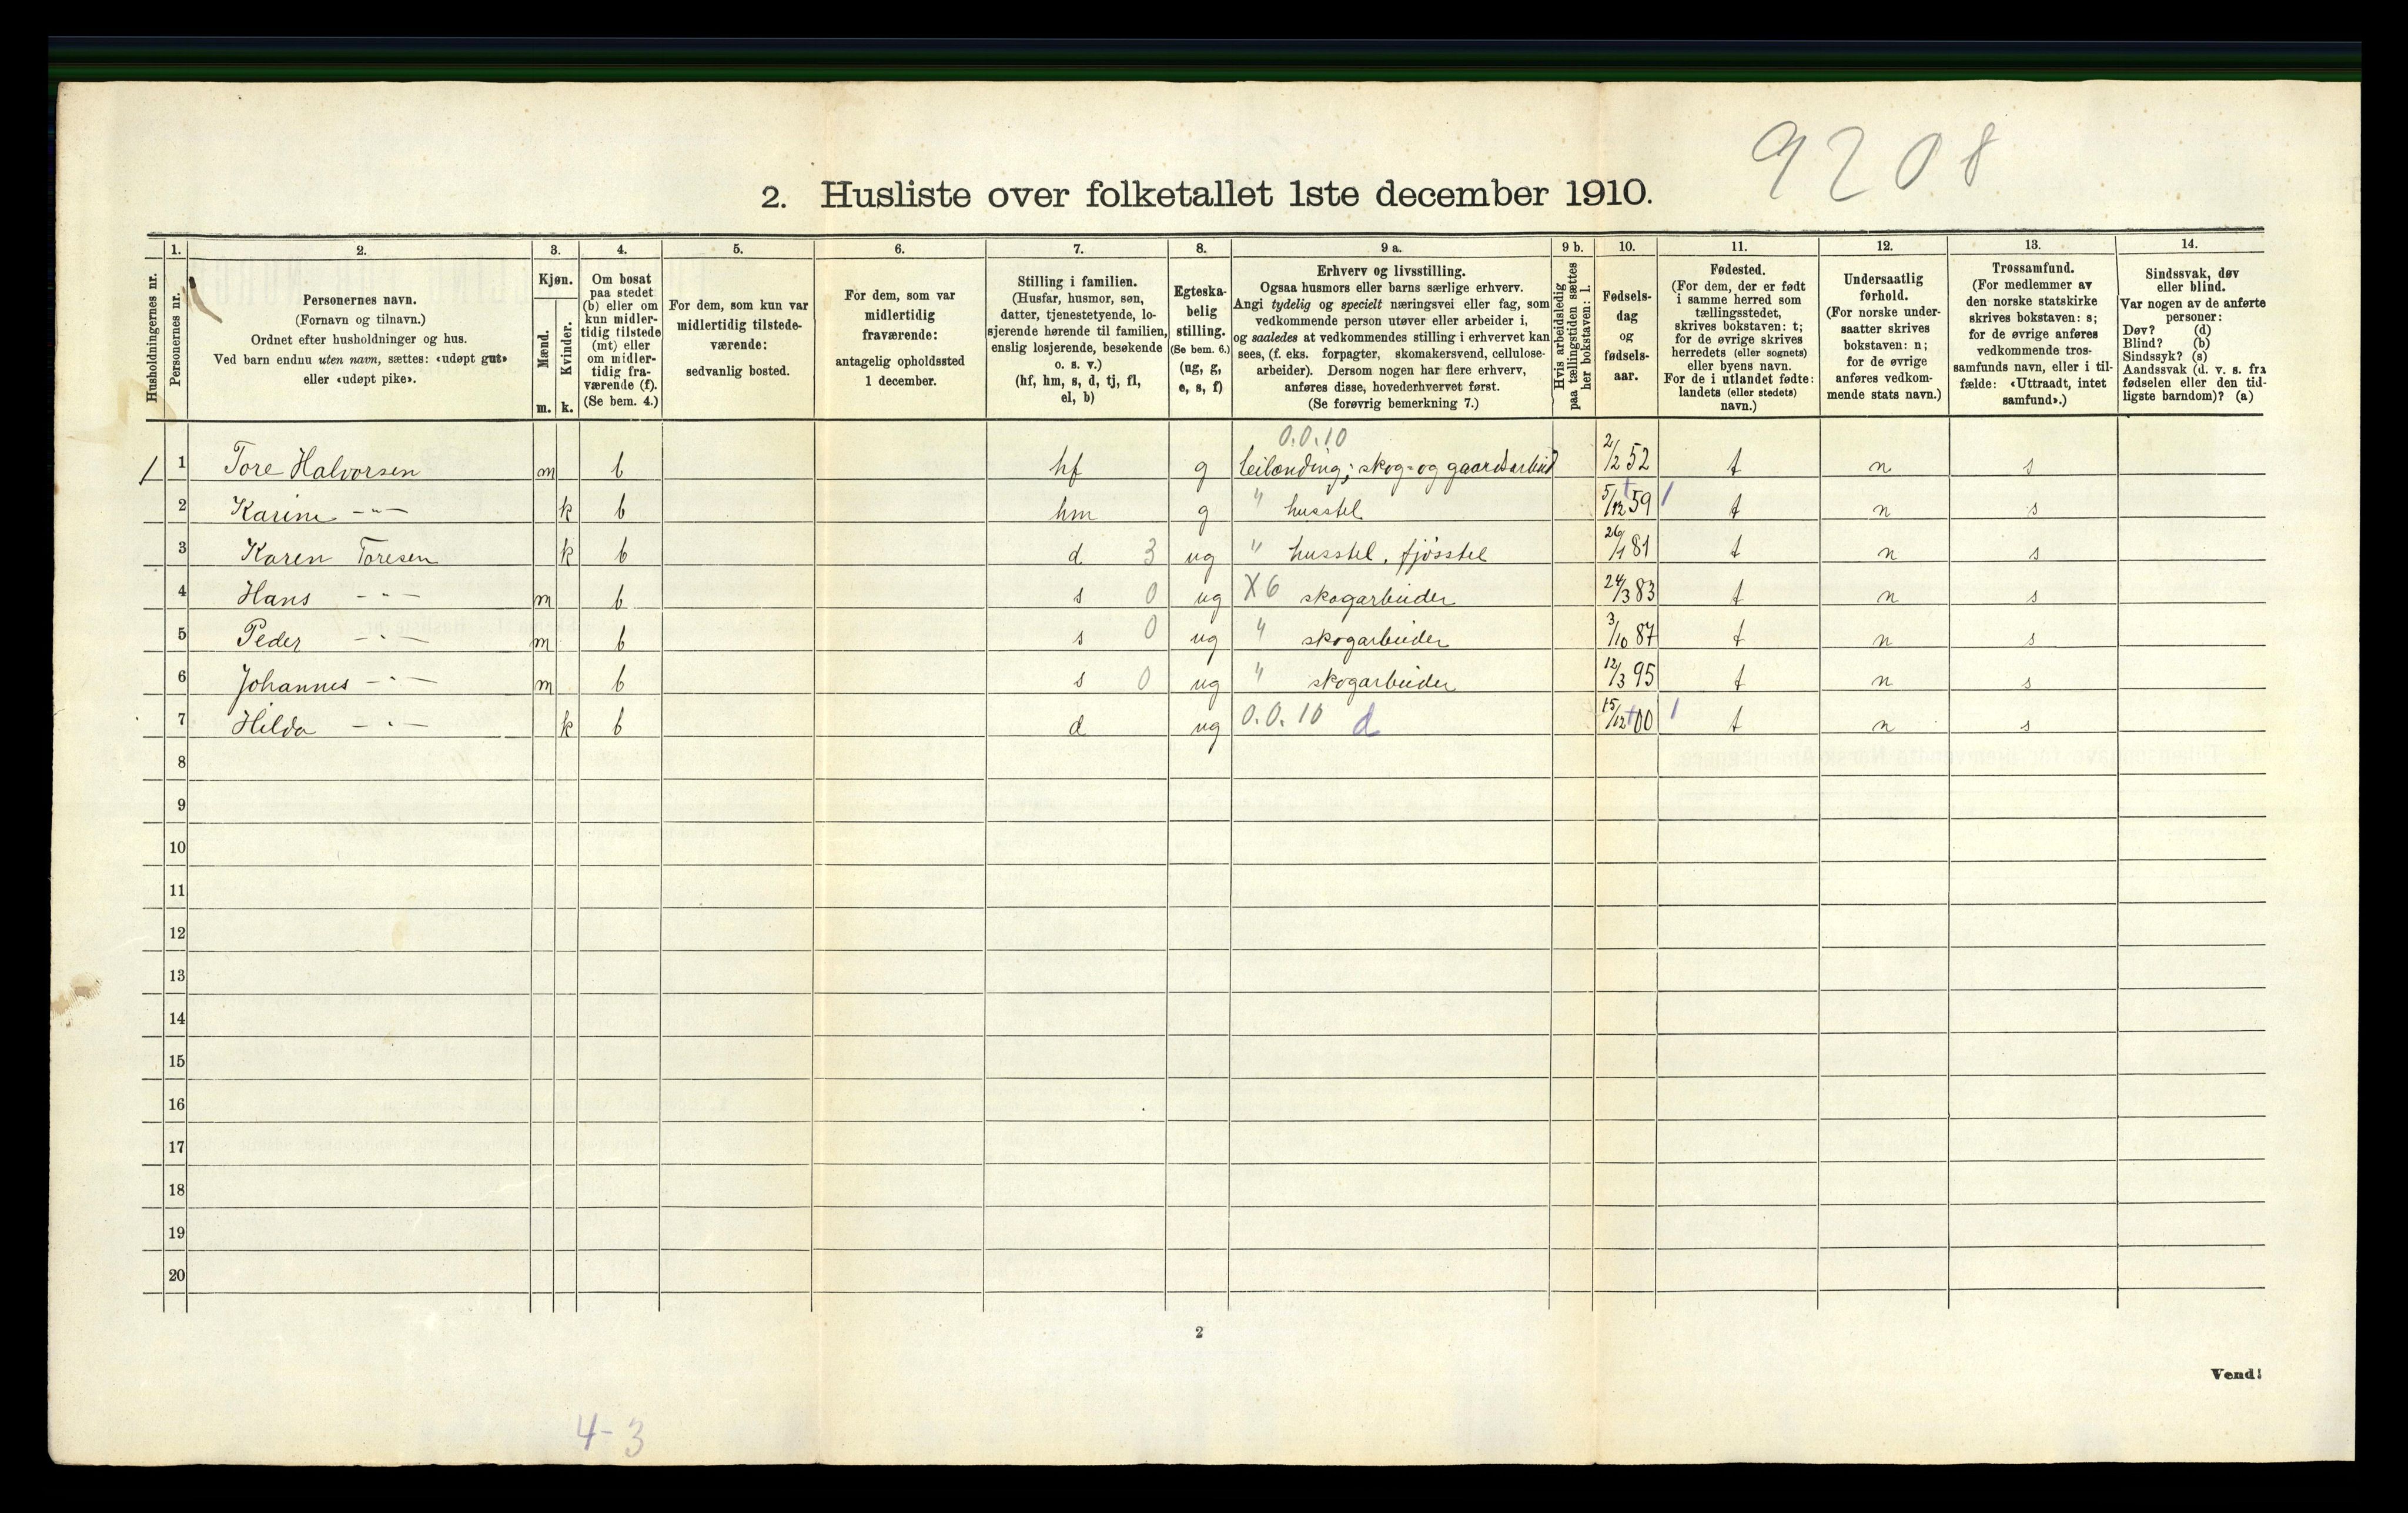 9208
2. Husliste over folketallet 1ste december 1910.
Husholdningernes nr.
1.
Personernes nr.
2.
Personernes navn.
(Fornavn og tilnavn.)
Ordnet efter husholdninger og hus.
Ved barn endnu uten navn, sættes: «udøpt gut»
eller «udøpt pike».
3.
Kjøn.
Mænd.
m.
Kvinder.
k.
4.
Om bosat
paa stedet
(b) eller om
kun midler-
tidig tilstede
(mt) eller
om midler-
tidig fra-
værende (f).
(Se bem. 4.)
5.
For dem, som kun var
midlertidig tilstede-
værende:
sedvanlig bosted.
6.
For dem, som var
midlertidig
fraværende:
antagelig opholdssted
1 december.
7.
Stilling i familien.
(Husfar, husmor, søn,
datter, tjenestetyende, lo-
sjerende hørende til familien,
enslig losjerende, besøkende
o. s. v.)
(hf, hm, s, d, tj, fl,
el, b)
8.
Egteska-
belig
stilling.
(Se bem. 6.)
(ug, g,
e, s, f)
9 a.
Erhverv og livsstilling.
Ogsaa husmors eller barns særlige erhverv.
Angi tydelig og specielt næringsvei eller fag, som
vedkommende person utøver eller arbeider i,
og saaledes at vedkommendes stilling i erhvervet kan
sees, (f. eks. forpagter, skomakersvend, cellulose-
arbeider). Dersom nogen har flere erhverv,
anføres disse, hovederhvervet først.
(Se forøvrig bemerkning 7.)
9 b.
Hvis arbeidsledig
paa tællingstiden sættes
her bokstaven: l.
10.
Fødsels-
dag
og
fødsels-
aar.
11.
Fødested.
(For dem, der er født
i samme herred som
tællingsstedet,
skrives bokstaven: t;
for de øvrige skrives
herredets (eller sognets)
eller byens navn.
For de i utlandet fødte:
landets (eller stedets)
navn.)
12.
Undersaatlig
forhold.
(For norske under-
saatter skrives
bokstaven: n;
for de øvrige
anføres vedkom-
mende stats navn.)
13.
Trossamfund.
(For medlemmer av
den norske statskirke
skrives bokstaven: s;
for de øvrige anføres
vedkommende tros-
samfunds navn, eller i til-
fælde: «Uttraadt, intet
samfund».)
14.
Sindssvak, døv
eller blind.
Var nogen av de anførte
personer:
Døv? (d)
Blind? (b)
Sindssyk? (s)
Aandssvak (d. v. s. fra
fødselen eller den tid-
ligste barndom)? (a)
0.0.10
1 1 Tore Halvorsen m b hf g leilænding; skog- og gaardsarbeid 2/2 52 t n s
2 Karine -"- k b hm g " husstel 5/12 59 1 t n s
3 Karen Toresen k b d 3 ug " husstel, fjösstel 26/1 81 t n s
4 Hans -"- m b s 0 ug X6 skogarbeider 24/3 83 t n s
5 Peder -"- m b s 0 ug " skogarbeider 3/10 87 t n s
6 Johannes -"- m b s 0 ug " skogarbeider 12/3 95 t n s
7 Hilda -"- k b d ug 0.0.10 d 15/12 00 1 t n s
8
9
10
11
12
13
14
15
16
17
18
19
20
2
Vend!
4-3